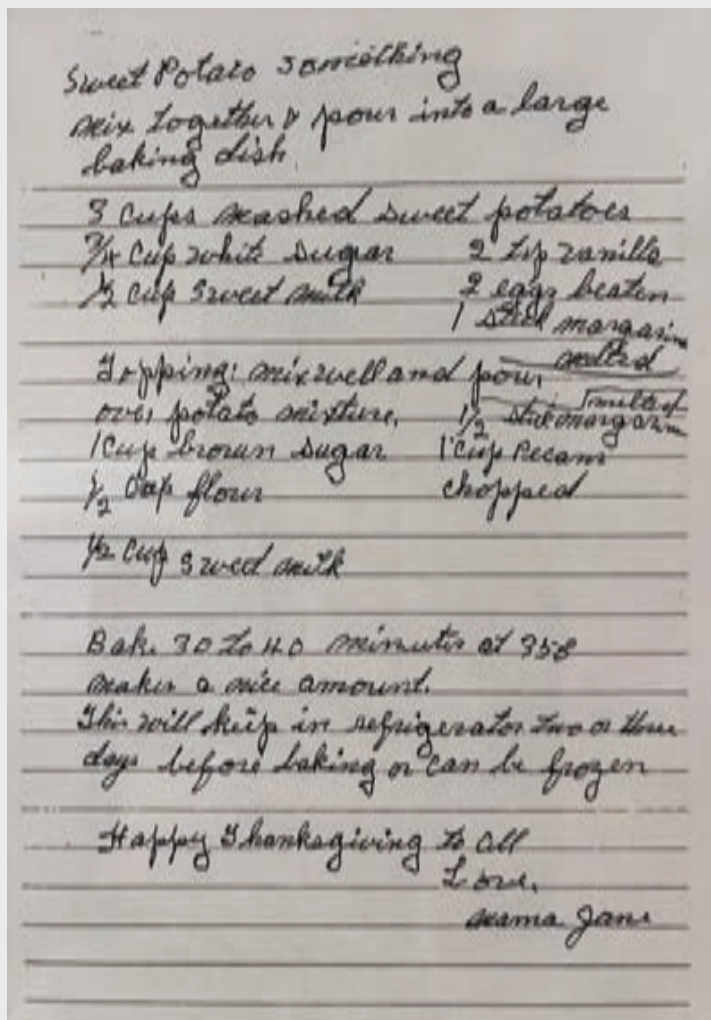 Sweet Potato Something
Mix together & pour into a large
baking dish.
3 cups mashed sweet potatoes
3/4 cup white sugar 2 tsp vanilla
1/2 cup sweet milk 2 eggs beaten
1 stick margarine
melted
Topping: mix well and pour
over potato mixture. 1/2 stick margarine melted
1 cup brown sugar 1 cup Pecans
1/2 cup flour chopped
1/2 cup sweet milk
Bake 30 to 40 minutes at 350
makes a nice amount.
This will keep in refrigerator two or three
days before baking or can be frozen
Happy Thanksgiving to all
Love,
Mama Jane